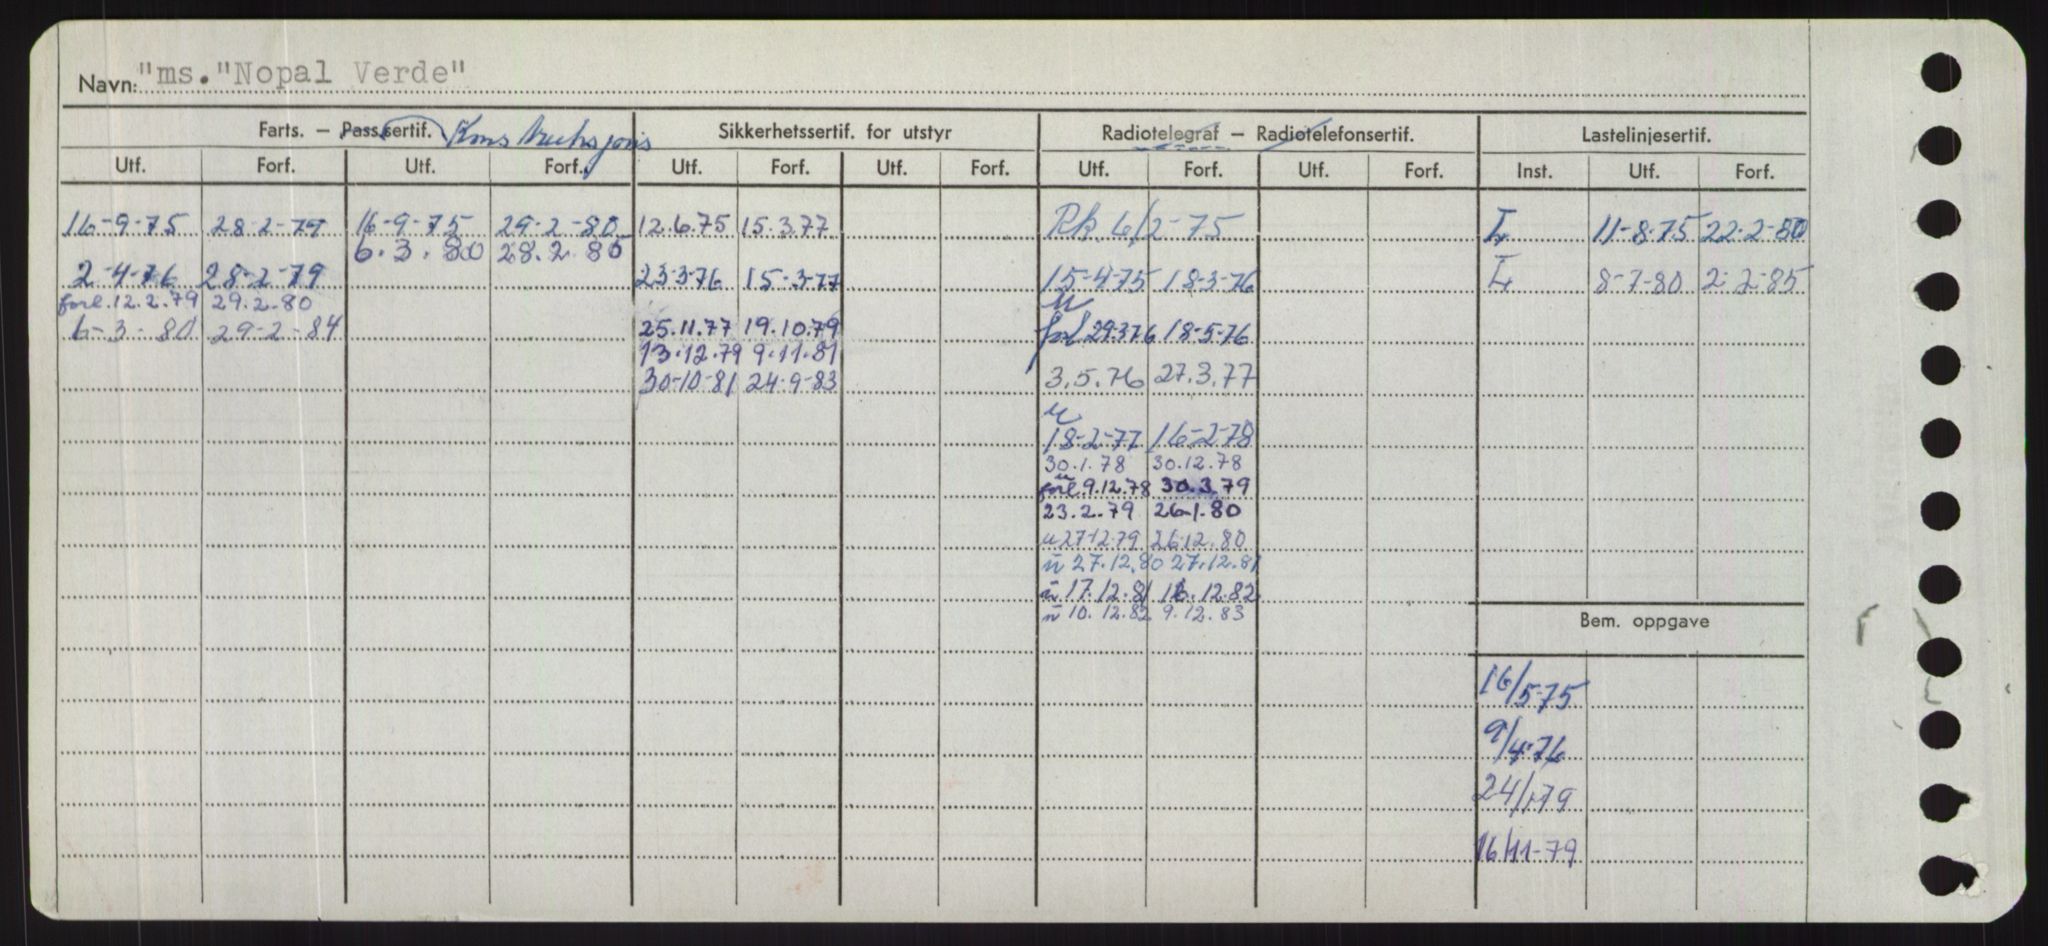 Navn: "ms."Nopal Verde"
Farts. – Pass.sertif. Konstruksjons Sikkerhetssertif. for utstyr Radiotelegraf – Radiotelefonsertif. Lastelinjesertif.
Utf. Forf. Utf. Forf. Utf. Forf. Utf. Forf. Utf. Forf. Utf. Forf. Inst. Utf. Forf.
16-9-75 28-2-79 16-9-75 29-2-80 12.6.75 15.3.77 Rk. 6/2-75 L 11-8-75 22-2-80
6.3.80 28.2.80
2-4-76 28-2-79 23-3-76 15-3-77 15-4-75 18-3-76 L 8-7-80 2-2-85
forl. 12.2.79 29.2.80 u
6-3-80 29-2-84 25.11.77 19.10.79 forl 29.3.76 18-5-76
13.12.79 9.11.81
30-10-81 24-9-83 3.5.76 27.3.77
u
18-2-77 16-2-78
30.1.78 30.12.78
u
forl. 9.12.78 30.3.79
23.2.79 26.1.80
u 27-12.79 26.12.80
u 27.12.80 27.12.81
u 17.12.81 16.12.82
u 10.12.82 9.12.83
Bem. oppgave
16/5-75
9/4-76
24/1-79
16/11-79